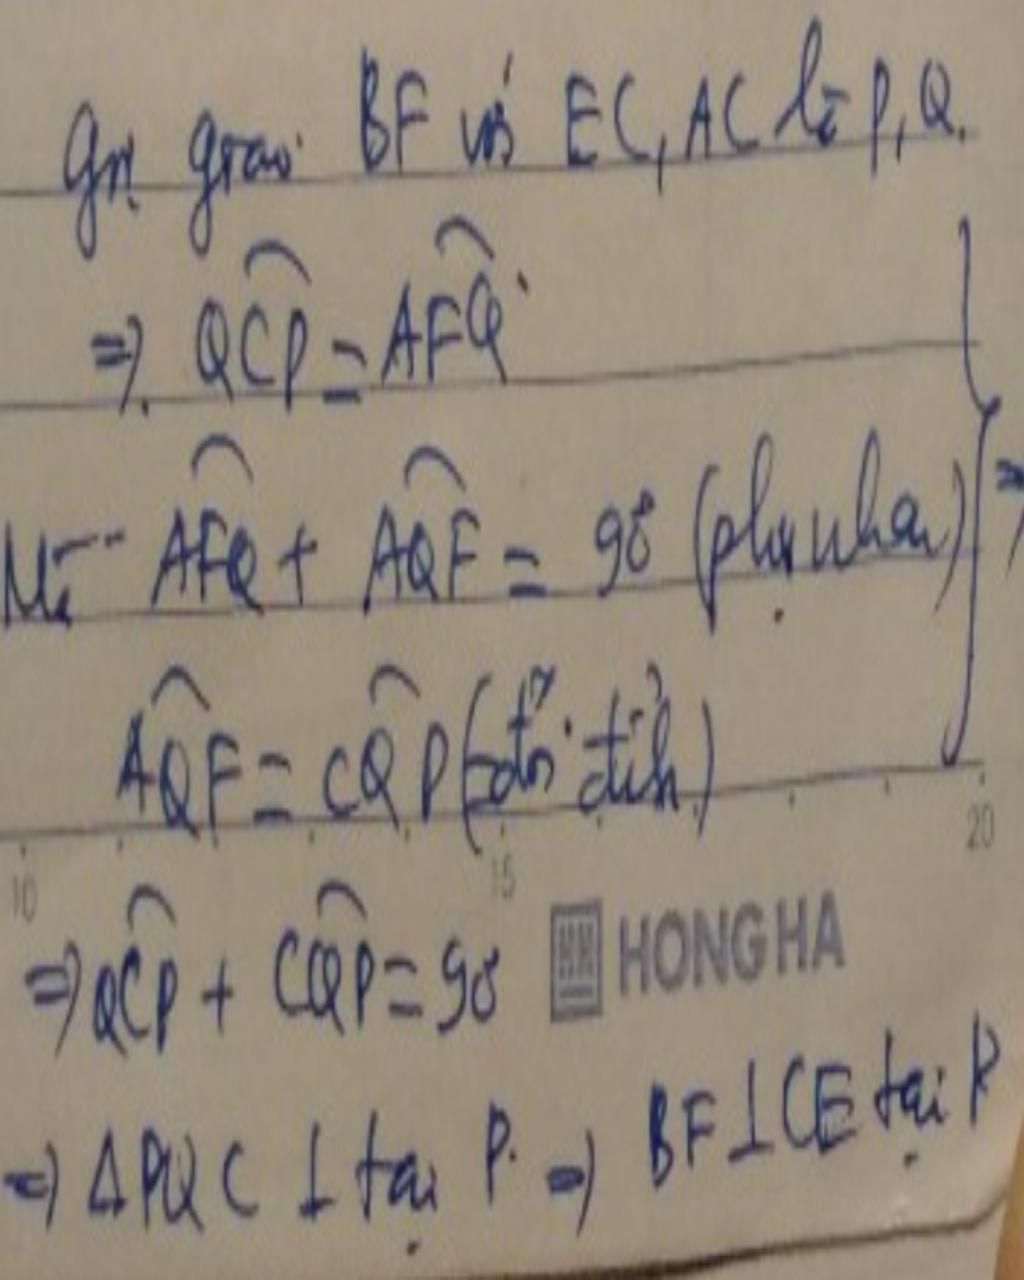 Gọi giao BF với EC, AC là P, Q.
⇒ QCP = AFQ
Mà AFQ + AQF = 90° (phụ nhau) } ⇒
AQF = CQP (đối đỉnh)
10 15 20
⇒ QCP + CQP = 90°
HONG HA
⇒ ΔPQC ⊥ tại P. ⇒ BF ⊥ CE tại P